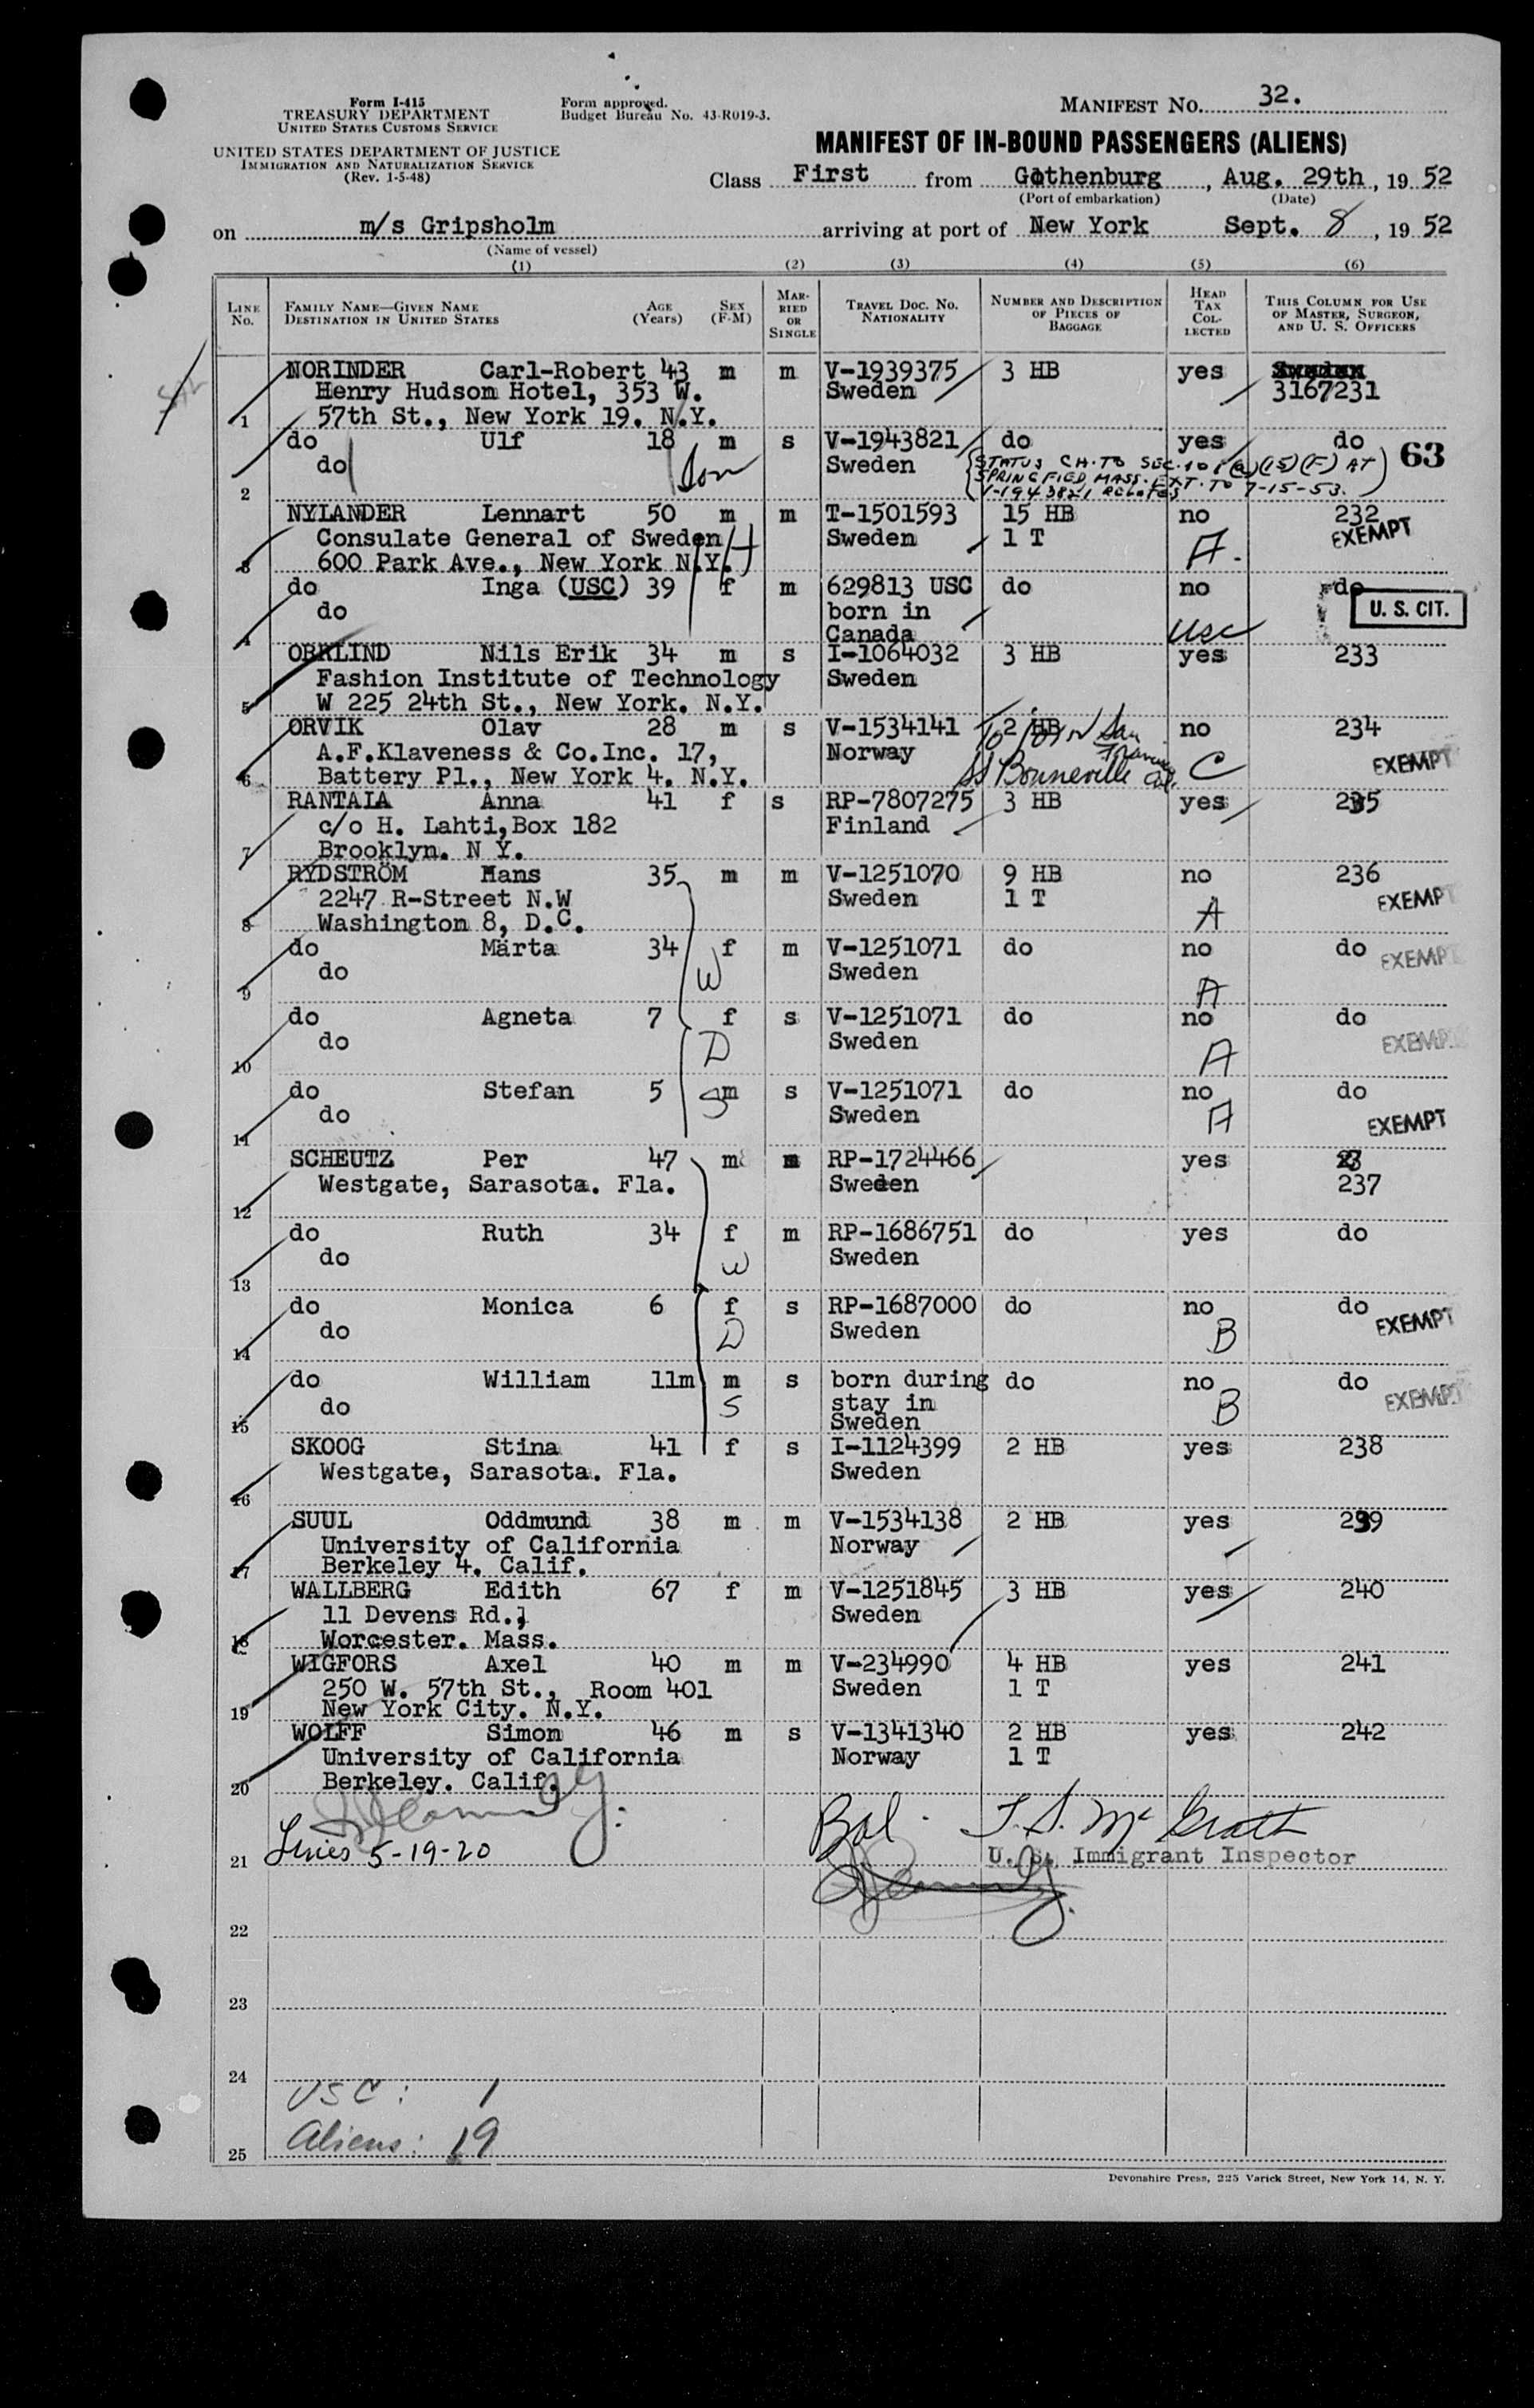 Form I-415
TREASURY DEPARTMENT
UNITED STATES CUSTOMS SERVICE
UNITED STATES DEPARTMENT OF JUSTICE
IMMIGRATION AND NATURALIZATION SERVICE
(Rev. 1-5-48)
Form approved.
Budget Bureau No. 43-R019-3.
MANIFEST NO. 32.
MANIFEST OF IN-BOUND PASSENGERS (ALIENS)
Class First from Gothenburg, Aug. 29th, 19 52
(Port of embarkation) (Date)
on m/s Gripsholm arriving at port of New York Sept. 8, 19 52
(Name of vessel)
(1) (2) (3) (4) (5) (6)
LINE NO. FAMILY NAME—GIVEN NAME DESTINATION IN UNITED STATES AGE (Years) SEX (F-M) MARRIED OR SINGLE TRAVEL DOC. NO. NATIONALITY NUMBER AND DESCRIPTION OF PIECES OF BAGGAGE HEAD TAX COLLECTED THIS COLUMN FOR USE OF MASTER, SURGEON, AND U. S. OFFICERS
NORINDER Carl-Robert 43 m m V-1939375 3 HB yes Sweden
Henry Hudson Hotel, 353 W. Sweden 3167231
1 57th St., New York 19. N.Y.
do Ulf 18 m s V-1943821 do yes do 63
do Son Sweden STATUS CH. TO SEC. 101(a)(15)(F) AT
SPRINGFIELD, MASS. EXT. TO 7-15-53.
2 V-1943821 RELATES
NYLANDER Lennart 50 m m T-1501593 15 HB no 232
Consulate General of Sweden H Sweden 1 T A. EXEMPT
3 600 Park Ave., New York N.Y.
do Inga (USC) 39 f m 629813 USC do no do
do born in U. S. CIT.
4 Canada usc
OBRLIND Nils Erik 34 m s I-1064032 3 HB yes 233
Fashion Institute of Technology Sweden
5 W 225 24th St., New York. N.Y.
ORVIK Olav 28 m s V-1534141 2 HB no 234
To join San
A.F.Klaveness & Co.Inc. 17, Norway C EXEMPT
6 Battery Pl., New York 4. N.Y. SS Bonneville Cal.
RANTALA Anna 41 f s RP-7807275 3 HB yes 235
c/o H. Lahti,Box 182 Finland
7 Brooklyn. N Y.
RYDSTRÖM Hans 35 m m V-1251070 9 HB no 236
2247 R-Street N.W Sweden 1 T A EXEMPT
8 Washington 8, D.C.
do Märta 34 f m V-1251071 do no do EXEMP
do W Sweden
9 A
do Agneta 7 f s V-1251071 do no do
do D Sweden A EXEMP
10
do Stefan 5 m s V-1251071 do no do
do S Sweden A EXEMPT
11
SCHEUTZ Per 47 m m RP-1724466 yes 23
Westgate, Sarasota. Fla. Sweden 237
12
do Ruth 34 f m RP-1686751 do yes do
do W Sweden
13
do Monica 6 f s RP-1687000 do no do EXEMPT
do D Sweden B
14
do William 11m m s born during do no do
do S stay in B EXEMPT
15 Sweden
SKOOG Stina 41 f s I-1124399 2 HB yes 238
Westgate, Sarasota. Fla. Sweden
16
SUUL Oddmund 38 m m V-1534138 2 HB yes 239
University of California Norway
17 Berkeley 4. Calif.
WALLBERG Edith 67 f m V-1251845 3 HB yes 240
11 Devens Rd., Sweden
18 Worcester. Mass.
WIGFORS Axel 40 m m V-234990 4 HB yes 241
250 W. 57th St., Room 401 Sweden 1 T
19 New York City. N.Y.
WOLFF Simon 46 m s V-1341340 2 HB yes 242
University of California Norway 1 T
20 Berkeley. Calif.
Bal. T. S. McGrath
21 Lines 5-19-20 U. S. Immigrant Inspector
22
23
24
USC: 1
25 Aliens: 19
Devonshire Press, 225 Varick Street, New York 14, N. Y.